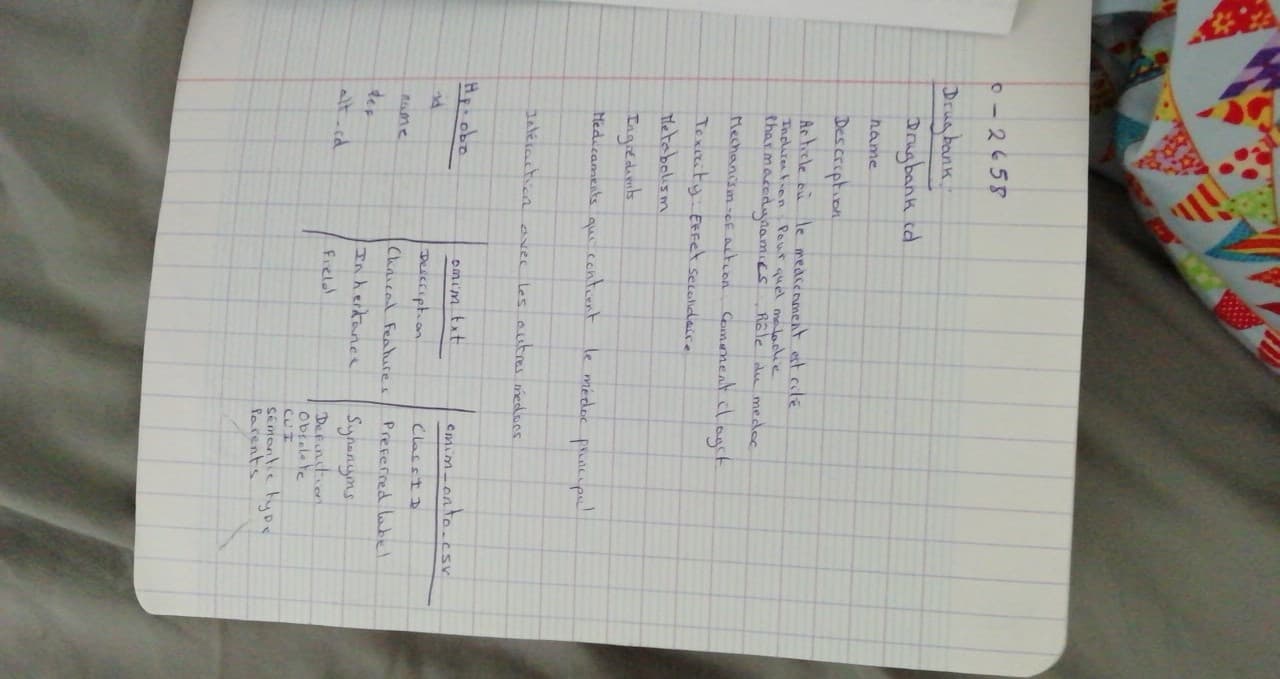 0 - 2658
Drugbank :
Drugbank id
name
Description
Article où le médicament est cité
Indication : Pour quel maladie
Pharmacodynamics : Rôle du medoc
Mechanism-of action : Comment il agit
Toxicity : Effet secondaire
Metabolism
Ingrédients
Médicaments qui contient le médoc principal
Intéraction avec les autres médocs
Hp.obo
id
name
def
alt-id
omim txt
Description
Clinical Features
Inheritance
Field
omim-onto-csv
Class ID
Preferred label
Synonyms
Definition
Obsolete
CUI
Sémantic type
Parents